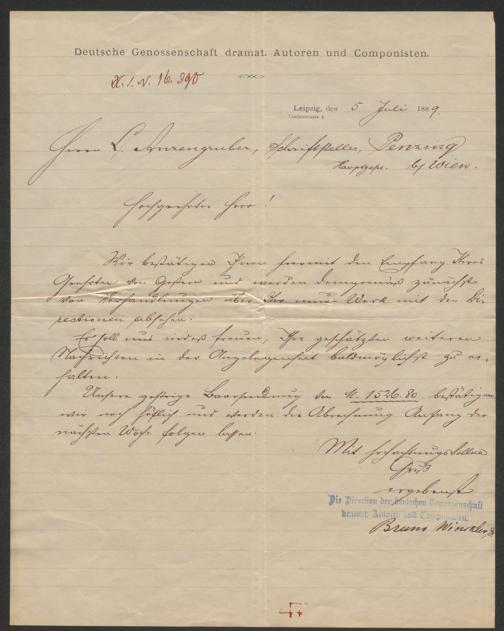 Deutsche Genossenschaft dramat. Autoren und Componisten.
Leipzig, den 5 Juli 1889.
Herrn L. Anzengruber, Schriftsteller, Penzing
b/ Wien.
Hochgeehrter Herr!
Wir bestätigen Ihnen hiermit den Empfang Ihres
Geehrten von Gestern und werden demgemäß zunächst
von Verhandlungen über Ihr neues Werk mit den Di-
rectionen absehen.
Es soll uns indeß freuen, Ihre geschätzten weiteren
Nachrichten in der Angelegenheit baldmöglichst zu er-
halten.
Unsere gestrige Baarsendung von M. 1526.80 bestätigen
wir noch höflich und werden die Abrechnung Anfang der
nächsten Woche folgen lassen.
Mit hochachtungsvollem
Gruß
ergebenst
Die Direction der deutschen Genossenschaft
dramat. Autoren und Componisten.
Bruno Winckler